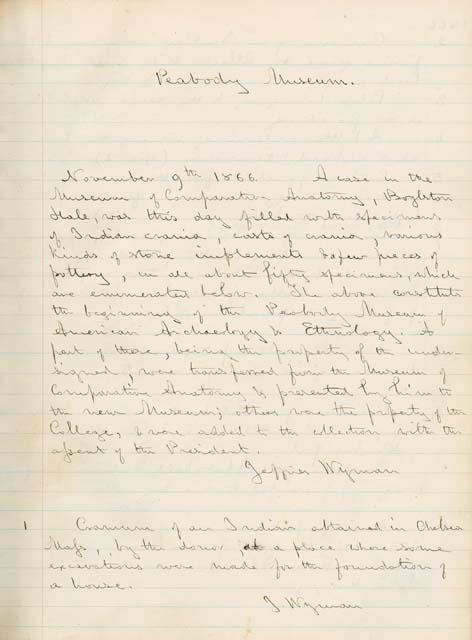 Peabody Museum.
November 9th 1866. A case in the
Museum of Comparative Anatomy, Boylston
Hall, was this day filled with specimens
of Indian crania, casts of crania, various
kinds of stone implements & a few pieces of
pottery, in all about fifty specimens, which
are enumerated below. The above constitute
the beginning of the Peabody Museum of
American Archaeology & Ethnology. A
part of these, being the property of the under-
signed, were transferred from the Museum of
Comparative Anatomy & presented by him to
the new Museum; others were the property of the
College, & were added to the collection with the
assent of the President.
Jeffries Wyman
1 Cranium of an Indian obtained in Chelsea
Mass, by the donor, at a place where some
excavations were made for the foundation of
a house.
J. Wyman